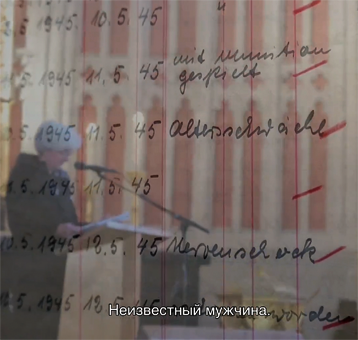 5. 1945 10. 5. 45 "
mit Munition
5. 1945 11. 5. 45 gespielt
5. 1945 11. 5. 45 Altersschwäche
5. 1945 11. 5. 45
5. 1945 12. 5. 45 Nervenschock
5. 1945 12. 5. 45
Неизвестный мужчина.